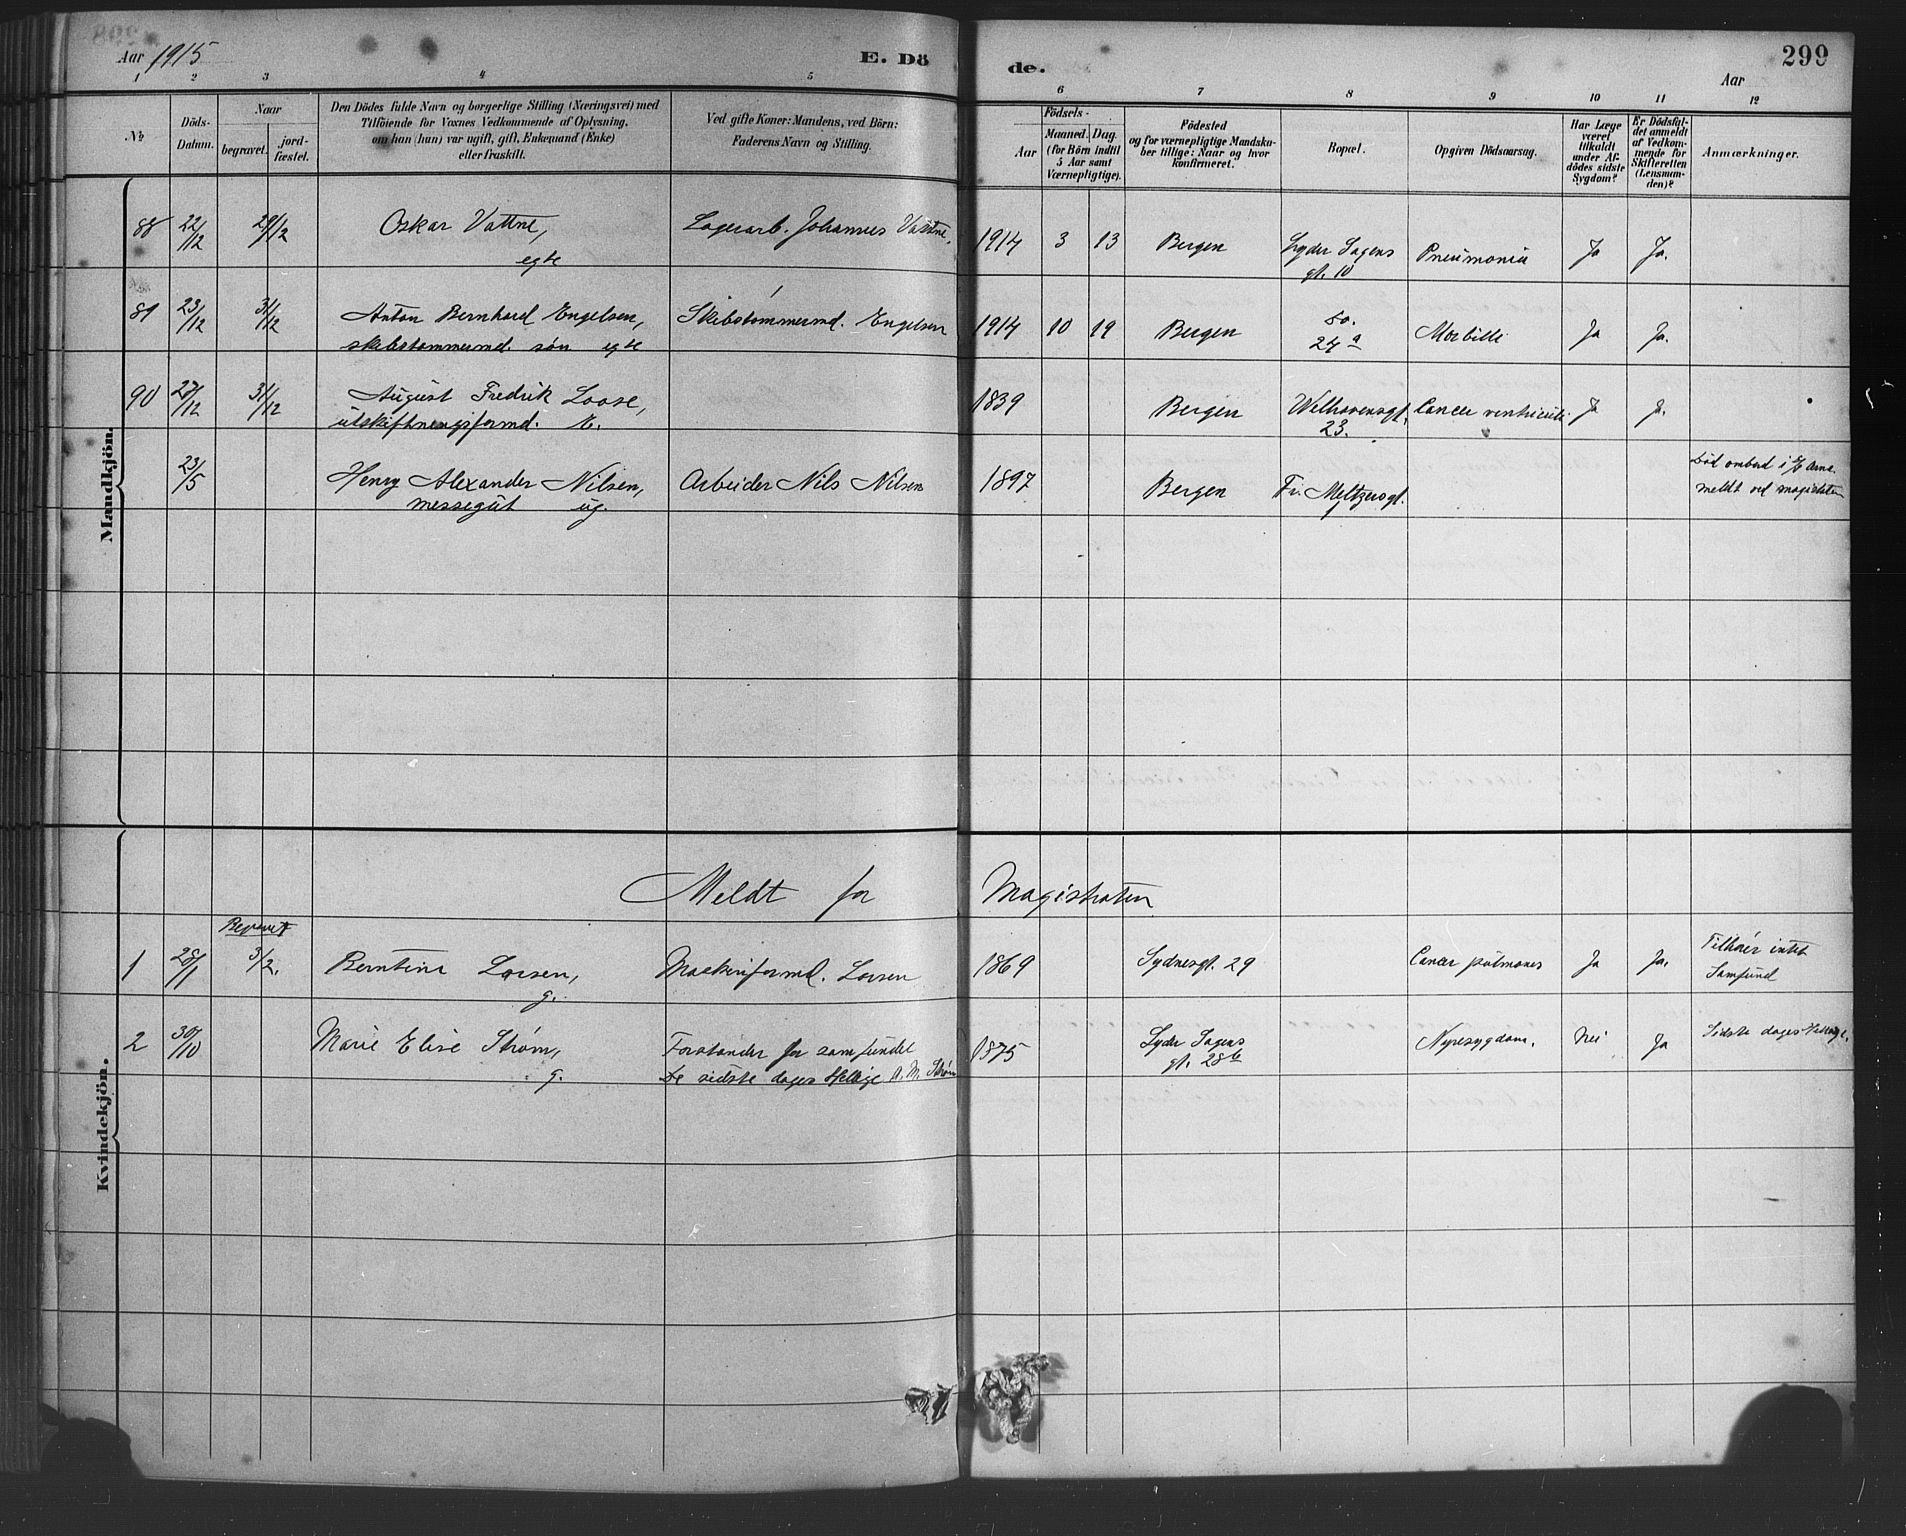 Aar 1915
E. Dö
de.
Aar
299
1 2 3 4 5 6 7 8 9 10 11 12
№
Döds-
Datum.
Naar
begravet.
jord-
fæstet.
Den Dödes fulde Navn og borgerlige Stilling (Næringsvei) med
Tilföiende for Voxnes Vedkommende af Oplysning,
om han (hun) var ugift, gift, Enkemand (Enke)
eller fraskilt.
Ved gifte Koner: Mandens, ved Börn:
Faderens Navn og Stilling.
Födsels-
Aar
Maaned. Dag.
(for Börn indtil
5 Aar samt
Værnepligtige).
Födested
og for værnepligtige Mandska-
ber tillige: Naar og hvor
konfirmeret.
Bopæl.
Opgiven Dödsaarsag.
Har Læge
været
tilkaldt
under Af-
dödes sidste
Sygdom?
Er Dödsfal-
det anmeldt
af Vedkom-
mende for
Skifteretten
(Lensman-
den)?
Anmærkninger.
Mandkjön.
88 22/12 29/12 Oskar Vattne, Lagerarb. Johannes Vattne, 1914 3 13 Bergen Lyder Sagens Pneumonia Ja Ja.
egte gt. 10
89 23/12 31/12 Anton Bernhard Engelsen, Skibstømmermd. Engelsen 1914 10 19 Bergen so. Morbilli Ja Ja.
skibstømmermd. søn egte 24 a
90 27/12 31/12 August Fredrik Loose, 1839 Bergen Welhavensgt. Cancer ventriculi Ja Ja.
utskiftningsformd. E. 23.
23/5 Henry Alexander Nilsen, Arbeider Nils Nilsen 1897 Bergen Fr. Meltzersgt. Død ombord i
messegut ug. meldt ved magistraten
Meldt for Magistraten
Kvindekjön.
Begravet
1 28/1 3/2. Berntine Larsen, Maskinformd. Larsen 1869 Sydnesgt. 29 Cancer pulmones Ja Ja. Tilhører intet
g. Samfund
2 30/10 Marie Elise Strøm, Forstander for samfundet 1875 Lyder Sagens Nyresygdom. Nei Ja Sidste dages Hellige.
g. De sidste dages Hellige A. M. Strøm gt. 28 b